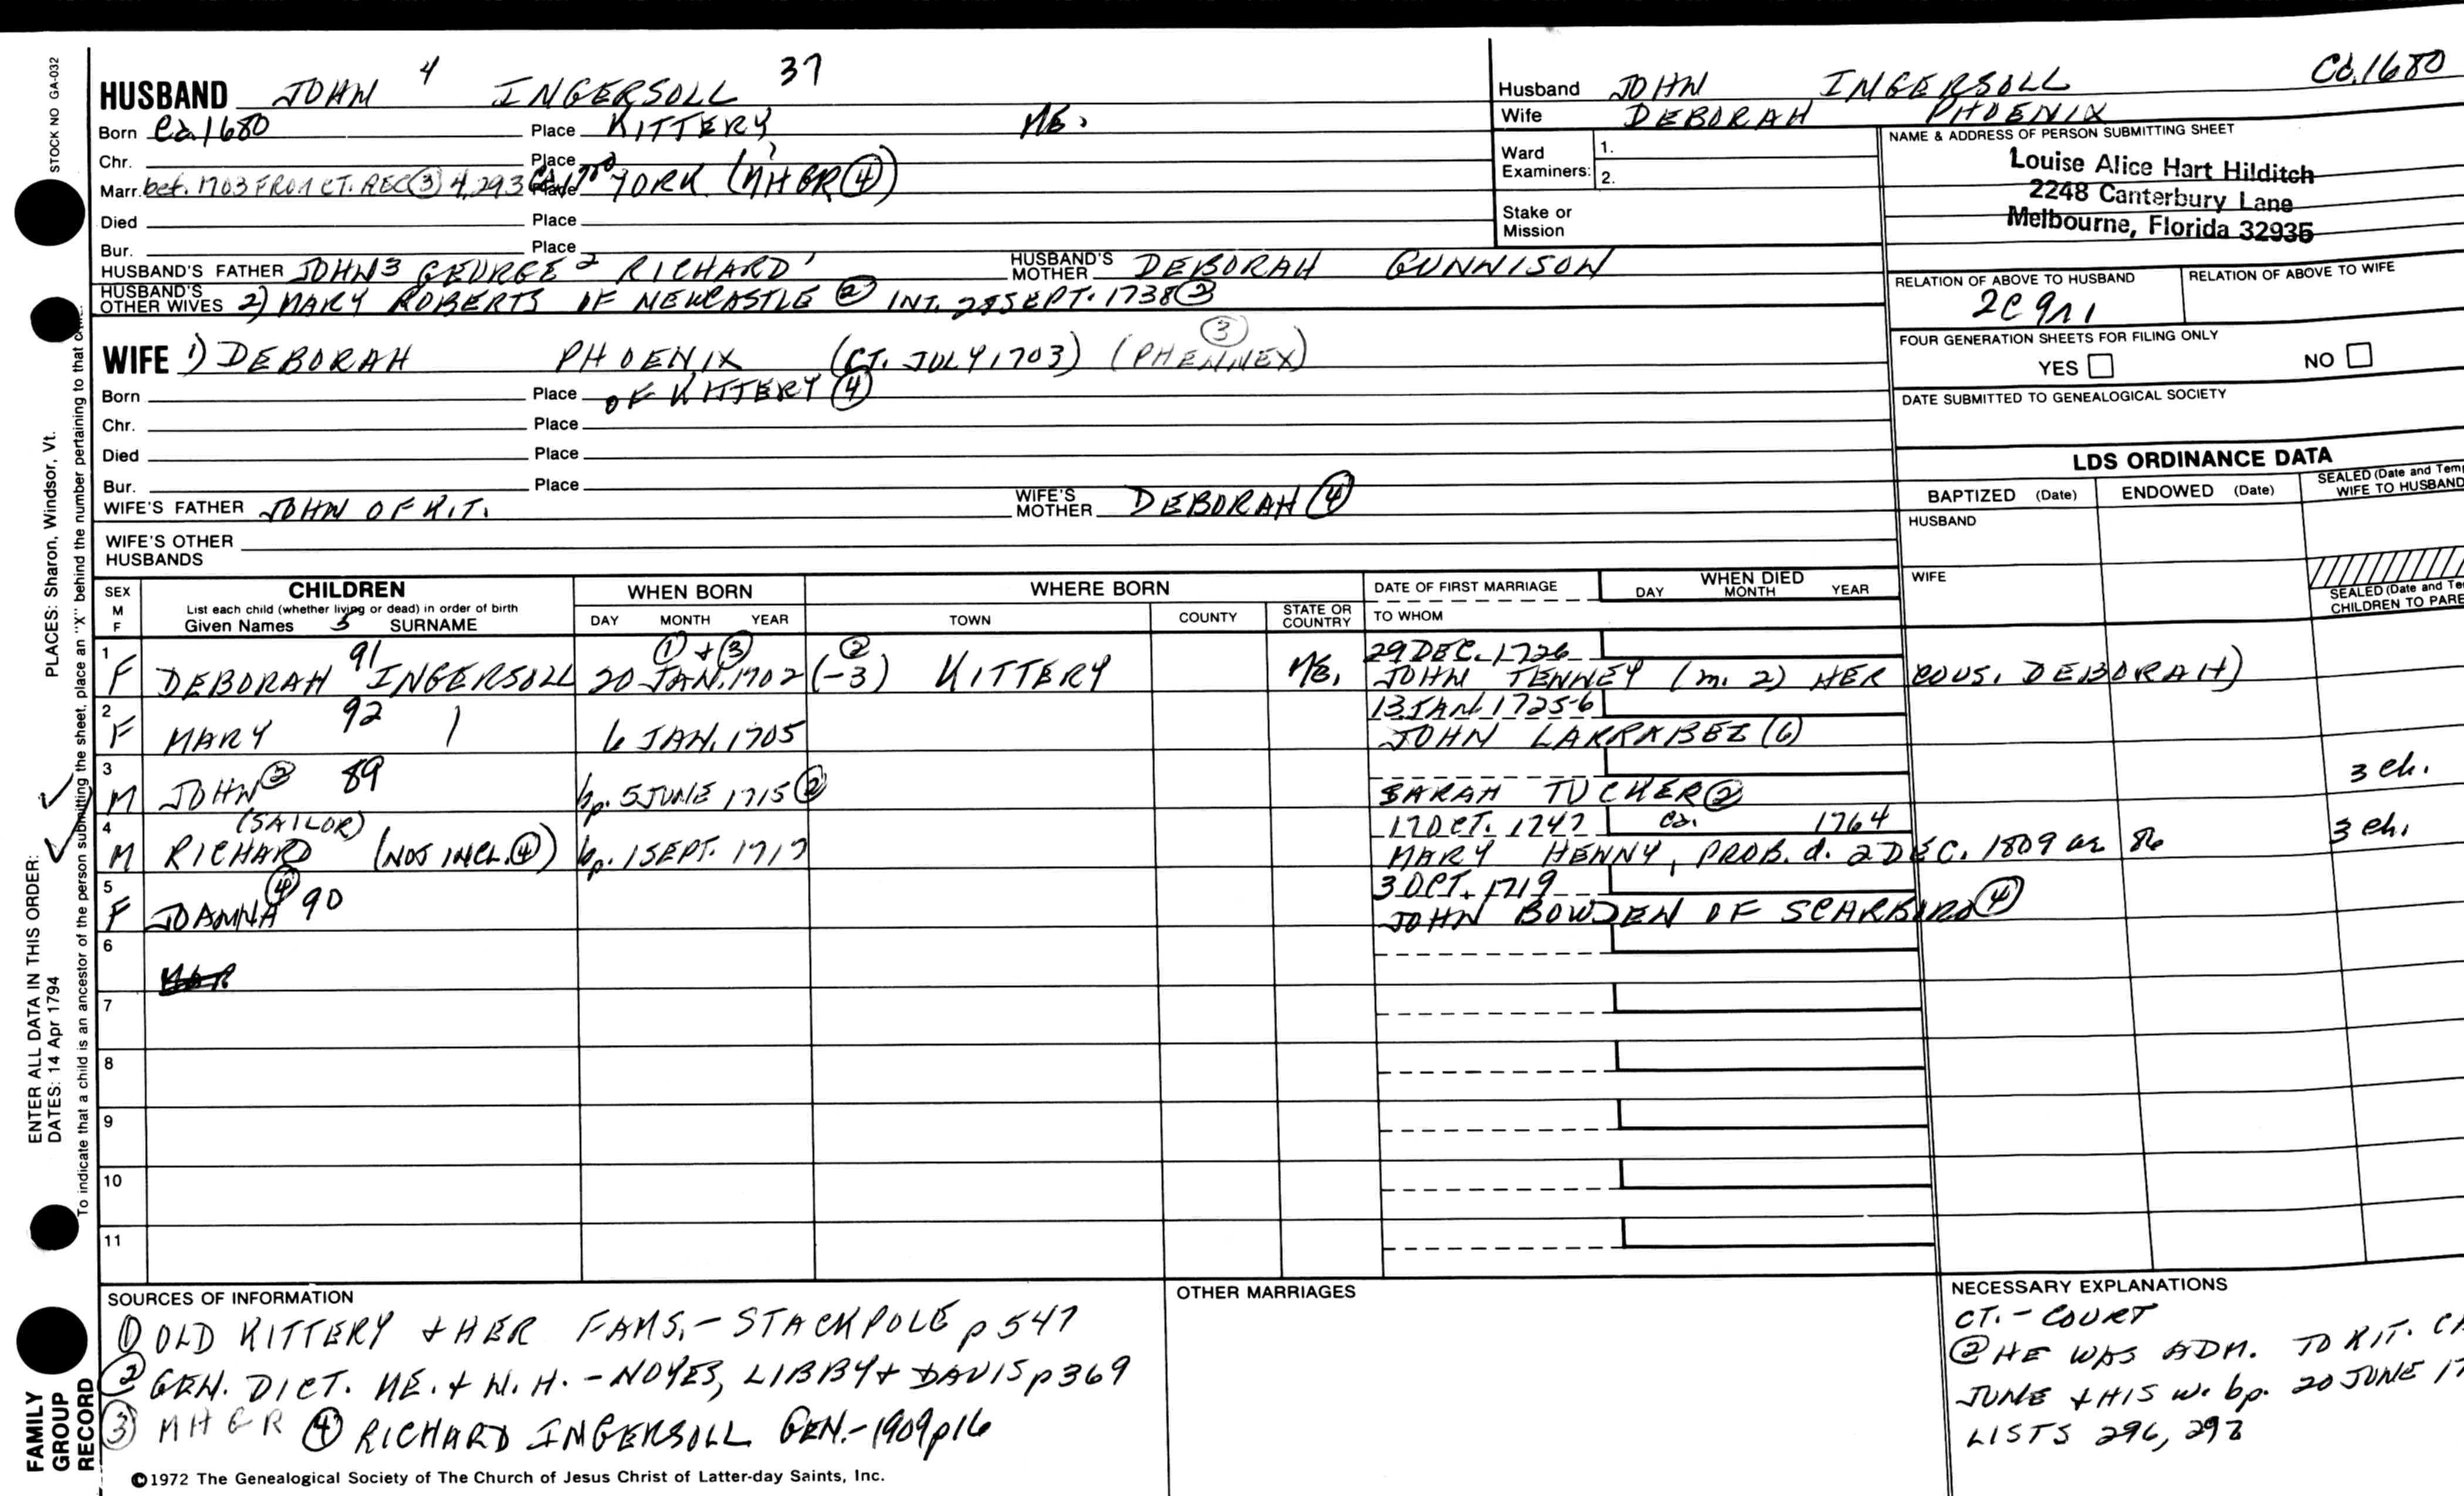 HUSBAND JOHN 4 INGERSOLL 37
Born Ca 1680 Place KITTERY, ME.
Chr. Place
Marr. bef. 1703 FROM CT. REC ③ 4,293 Place YORK (MHGR ④)
Died Place
Bur. Place
HUSBAND'S FATHER JOHN 3 GEORGE 2 RICHARD 1 HUSBAND'S MOTHER DEBORAH GUNNISON
HUSBAND'S OTHER WIVES 2) MARY ROBERTS OF NEWCASTLE ② INT. 28 SEPT. 1738 ③
WIFE 1) DEBORAH PHOENIX (CT. JULY 1703) (PHENNEX) ③
Born Place OF KITTERY ④
Chr. Place
Died Place
Bur. Place
WIFE'S FATHER JOHN OF KIT. WIFE'S MOTHER DEBORAH ④
WIFE'S OTHER HUSBANDS
Husband JOHN INGERSOLL Ca. 1680
Wife DEBORAH PHOENIX
Ward Examiners: 1.
2.
Stake or Mission
NAME & ADDRESS OF PERSON SUBMITTING SHEET
Louise Alice Hart Hilditch
2248 Canterbury Lane
Melbourne, Florida 32935
RELATION OF ABOVE TO HUSBAND RELATION OF ABOVE TO WIFE
2C 9r1
FOUR GENERATION SHEETS FOR FILING ONLY
YES NO
DATE SUBMITTED TO GENEALOGICAL SOCIETY
LDS ORDINANCE DATA
BAPTIZED (Date) ENDOWED (Date) SEALED (Date and Tem
WIFE TO HUSBAND
HUSBAND
WIFE
SEALED (Date and Te
CHILDREN TO PARE
SEX M F CHILDREN WHEN BORN WHERE BORN DATE OF FIRST MARRIAGE WHEN DIED
List each child (whether living or dead) in order of birth
Given Names 5 SURNAME DAY MONTH YEAR TOWN COUNTY STATE OR COUNTRY TO WHOM DAY MONTH YEAR
1 91 ① + ③ ② 29 DEC. 1726
F DEBORAH INGERSOLL 20 JAN. 1702 (-3) KITTERY ME. JOHN TENNEY (m. 2) HER COUS. DEBORAH)
2 92 13 JAN 1725-6
F MARY 6 JAN. 1705 JOHN LARRABEE (6)
3 89
M JOHN ② bp. 5 JUNE 1715 ② SARAH TUCKER ② 3 ch.
4 (SAILOR) 17 OCT. 1747 ca. 1764
M RICHARD (NOT INCL. ④) bp. 1 SEPT. 1717 MARY HENNY, PROB. d. 2 DEC. 1809 ae 86 3 ch.
5 ④ 3 OCT. 1719
F JOANNA 90 JOHN BOWDEN OF SCARBORO ④
6
7
8
9
10
11
SOURCES OF INFORMATION
① OLD KITTERY + HER FAMS. - STACKPOLE p 547
② GEN. DICT. ME. + N. H. - NOYES, LIBBY + DAVIS p 369
③ MHGR ④ RICHARD INGERSOLL GEN. - 1909 p 16
OTHER MARRIAGES
NECESSARY EXPLANATIONS
CT. - COURT
② HE WAS ADM. TO KIT.
JUNE + HIS w. bp. 20 JUNE 17
LISTS 296, 297
©1972 The Genealogical Society of The Church of Jesus Christ of Latter-day Saints, Inc.
STOCK NO GA-032
PLACES: Sharon, Windsor, Vt.
ENTER ALL DATA IN THIS ORDER:
DATES: 14 Apr 1794
To indicate that a child is an ancestor of the person submitting the sheet, place an "X" behind the number pertaining to that
FAMILY GROUP RECORD